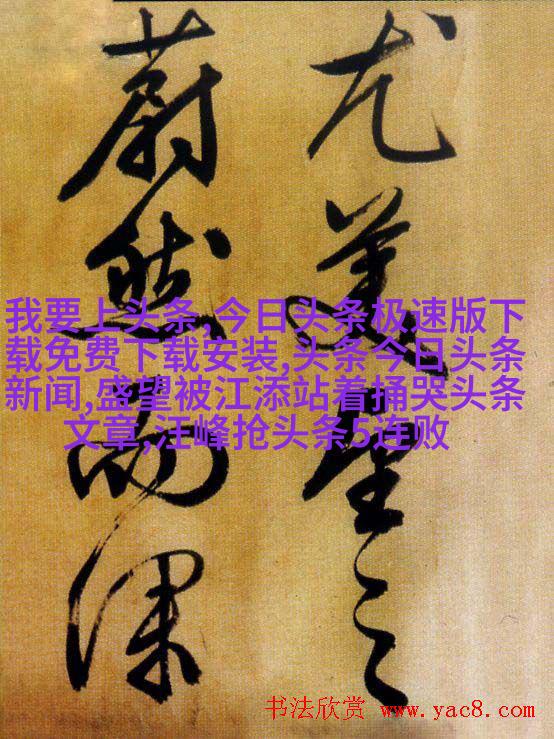 尤美望之
蔚然而深
我要上头条,今日头条极速版下
载免费下载安装,头条今日头条
新闻,盛望被江添站着捅哭头条
文章,汪峰抢头条5连败
书法欣赏 www.yac8.com